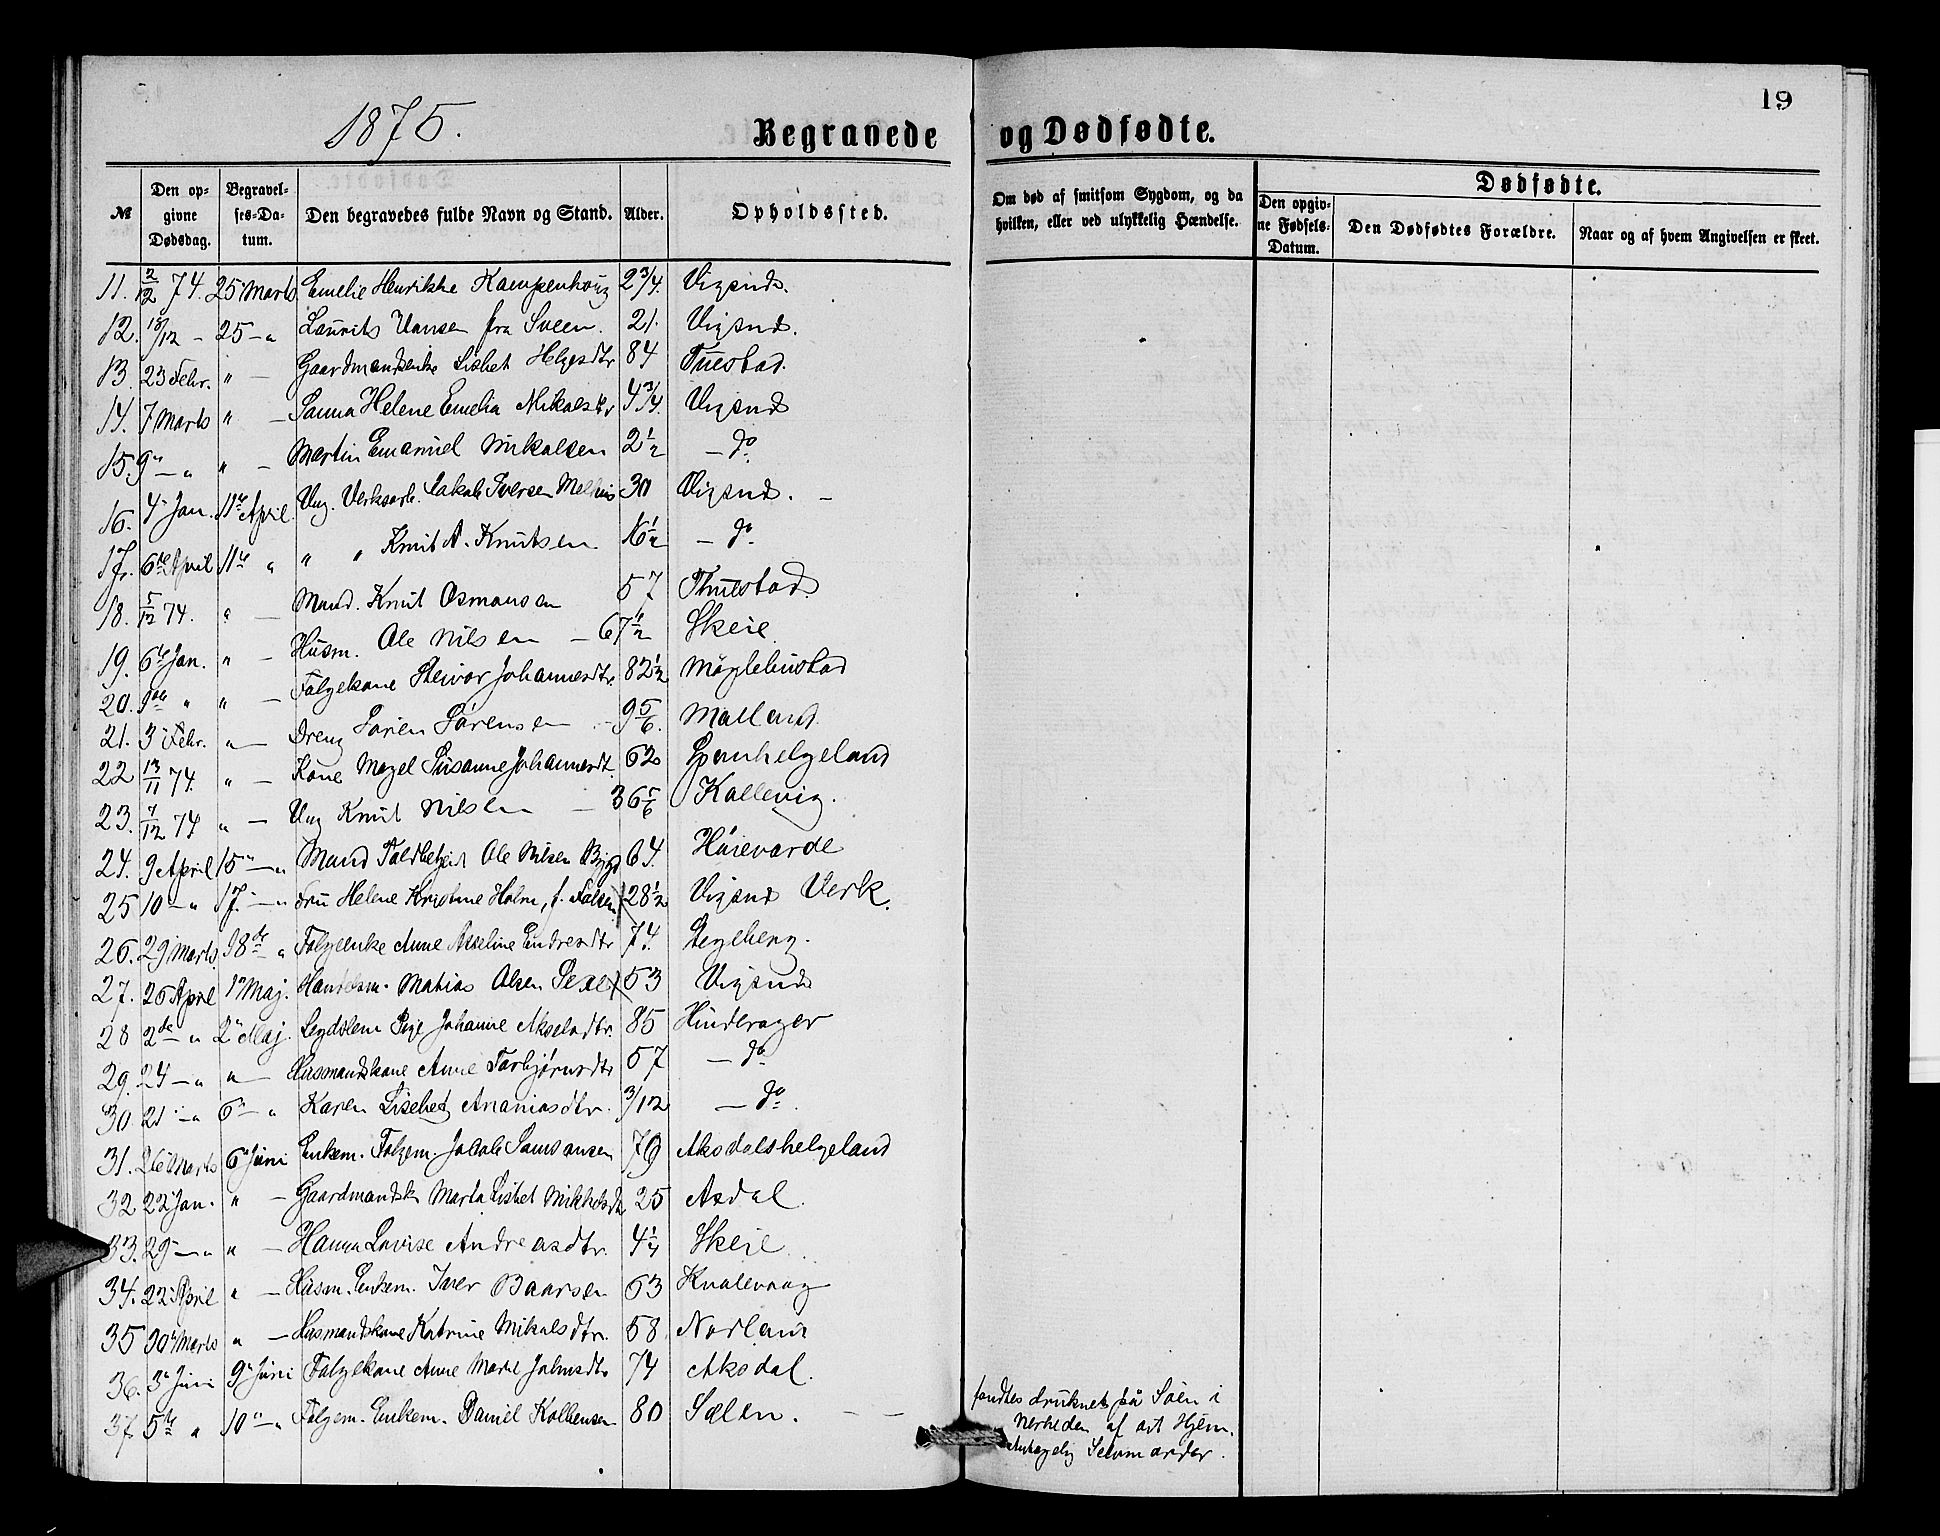 19
1875.
Begravede og Dødfødte.
№ Den op- givne Dødsdag. Begravel- ses-Da- tum. Den begravedes fulde Navn og Stand. Alder. Opholdssted. Om død af smitsom Sygdom, og da hvilken, eller ved ulykkelig Hændelse. Dødfødte. Den opgiv- ne Fødsels- Datum. Den Dødfødtes Forældre. Naar og af hvem Angivelsen er skeet.
11. 2/12 74. 25 Marts Emelie Henrikke Kampenhoug 2 3/4. Vigsnes.
12. 18/12 - 25 - " Laurits Hansen fra Sveen. 21. Vigsnes.
13. 23 Febr. " - Gaardmandsenke Lisbet Helgesdtr 84 Tuestad.
14. 7 Marts " - Sanna Helene Emelia Mikalsdtr 4 3/4. Vigsnes
15. 9 - " " - Martin Emanuel Mikalsen 2 1/2 - do
16. 4 Jan. 11te April Ung. Verksarb. Jakob Iversen 30 Vigsnes. -
17. 6te April 11te " " " Knut A. Knutsen 16 1/2 - do
18. 5/12 74. " - Mand. Knut Osmonsen 57 Thuestad.
19. 6te Jan. " - Husm. Ole Nilsen - 67 1/2 Skeie
20. 9de " " - Folgekone Johannesdtr. 82 1/2 Møglebustad
21. 3 Febr. " - Dreng Søren Sørensen - 9 5/6. Malland.
22 13/11 74. " - Kone Magel Susanne Johannesdt. 62 Spanhelgeland
23. 7/12 74 " - Ung Knut Nilsen - 36 5/6 Kallevig.
24. 9 April 15 - " Mand Toldbetjent Ole Nilsen 64. Høievarde
25 10 - " 17. - " Fru Helene Kristine Holm, f. Falsen 28 1/2 Vigsnes Verk.
26. 29 Marts. 18de - " Folgeenke Anne Asseline Endresdtr 74.
27. 26 April 1 Maj. Handelsm. Matias Olsen 53 Vigsnes
28 2de - " 2 Maj. Legdslem Pige Johanne Akselsdtr. 85 Hinderager
29. 24 - " " - Husmandskone Anne Torbjørnsdtr 57 - do
30. 21 - " 6 - " Karen Lisebet Ananiasdtr. 3/12 - do.
31. 26 Marts 6 Juni Enkem. Folgem. Jakob Samsonsen 79 Aksdalshelgeland
32 22 Jan. " - Gaardmandsk Marta Lisbet Mikkelsdtr 25 Asdal.
33. 29 - " " - Hanna Lovise Andreasdtr. 4 1/4 Skeie.
34. 22 April " - Husm. Enkem. Iver Baarsen 63 Kvalevaag
35 30 Marts " - Husmandskone Katrine Mikalsdtr. 58. Norland
36. 3 Juni 9 Juni Folgekone Anne Marte Johnsdtr 74 Aksdal.
37. 5te " 10 - " Folgem. Enkem. Daniel Kolbensen 80 Sælen. - - fandtes druknet på Søen i
Nerheden af sit Hjem.
Antagelig Selvmorder.